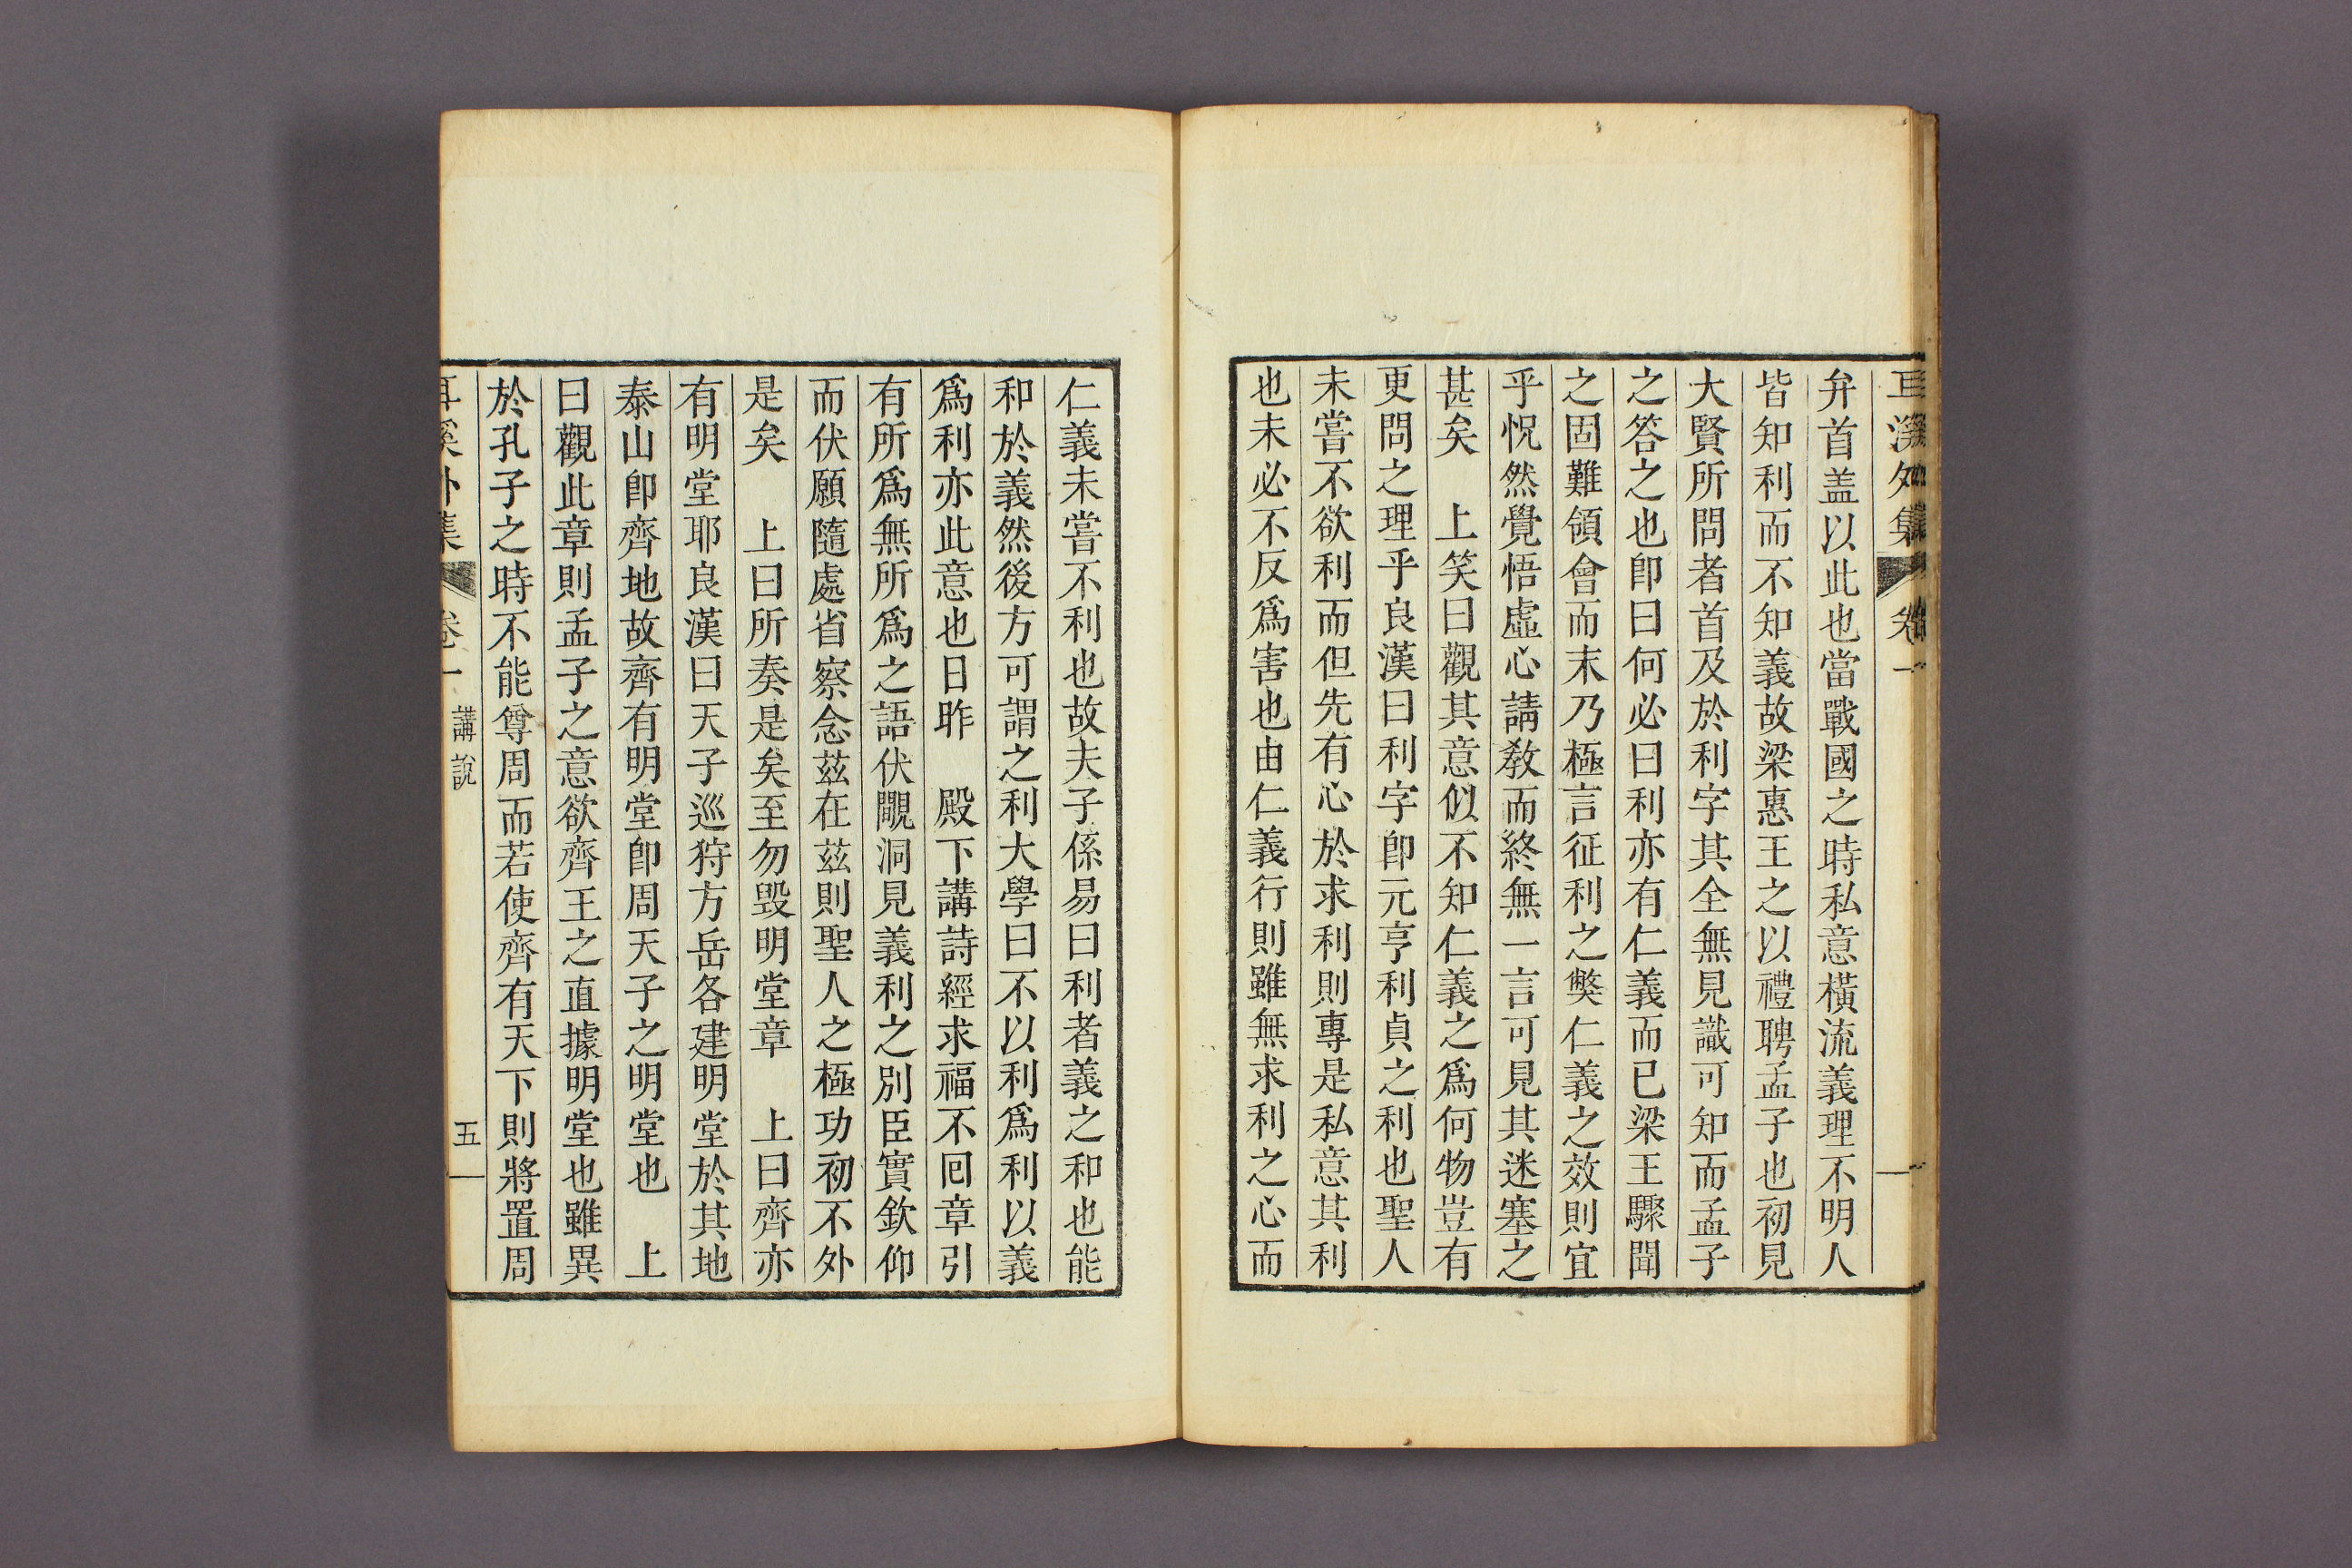 耳溪外集 卷一
弁首盖以此也當戰國之時私意橫流義理不明人
皆知利而不知義故梁惠王之以禮聘孟子也初見
大賢所問者首及於利字其全無見識可知而孟子
之答之也卽曰何必曰利亦有仁義而已梁王驟聞
之固難領會而末乃極言征利之獘仁義之效則宜
乎怳然覺悟虛心請敎而終無一言可見其迷塞之
甚矣 上笑曰觀其意似不知仁義之爲何物豈有
更問之理乎良漢曰利字卽元亨利貞之利也聖人
未嘗不欲利而但先有心於求利則專是私意其利
也未必不反爲害也由仁義行則雖無求利之心而
仁義未嘗不利也故夫子係易曰利者義之和也能
和於義然後方可謂之利大學曰不以利爲利以義
爲利亦此意也日昨 殿下講詩經求福不回章引
有所爲無所爲之語伏覸洞見義利之別臣實欽仰
而伏願隨處省察念茲在茲則聖人之極功初不外
是矣 上曰所奏是矣至勿毁明堂章 上曰齊亦
有明堂耶良漢曰天子巡狩方岳各建明堂於其地
泰山卽齊地故齊有明堂卽周天子之明堂也 上
曰觀此章則孟子之意欲齊王之直據明堂也雖異
於孔子之時不能尊周而若使齊有天下則將置周
耳溪外集 卷一 講說 五